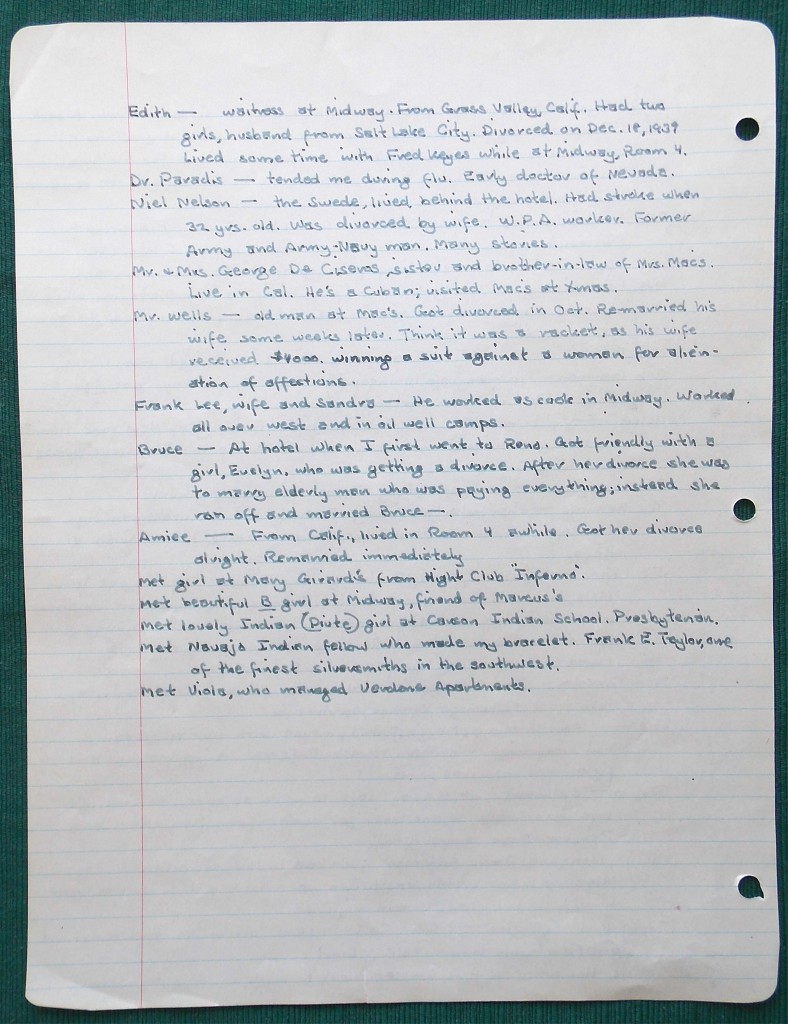 Edith — waitress at Midway. From Grass Valley, Calif. Had two
girls, husband from Salt Lake City. Divorced on Dec. 18, 1939
Lived some time with Fred Keyes while at Midway, Room 4.
Dr. Paradis — tended me during flu. Early doctor of Nevada.
Niel Nelson — the Swede, lived behind the hotel. Had stroke when
32 yrs. old. Was divorced by wife. W.P.A. worker. Former
Army and Army-Navy man. Many stories.
Mr. & Mrs. George De Ciseros, sister and brother-in-law of Mrs. Macs.
Live in Cal. He's a Cuban; visited Mac's at Xmas.
Mr. Wells — old man at Mac's. Got divorced in Oct. Re-married his
wife some weeks later. Think it was a racket, as his wife
received $4000. winning a suit against a woman for alien-
ation of affections.
Frank Lee, wife and Sandra — He worked as cook in Midway. Worked
all over west and in oil well camps.
Bruce — At hotel when I first went to Reno. Got friendly with a
girl, Evelyn, who was getting a divorce. After her divorce she was
to marry elderly man who was paying everything; instead she
ran off and married Bruce —.
Amiee — From Calif., lived in Room 4 awhile. Got her divorce
alright. Remarried immediately
Met girl at Mary Girard's from Night Club "Inferno".
Met beautiful B girl at Midway, friend of Marcus's
Met lovely Indian (Piute) girl at Carson Indian School. Presbyterian.
Met Navajo Indian fellow who made my bracelet. Frank E. Taylor, one
of the finest silversmiths in the southwest.
Met Viola, who managed Verdone Apartments.